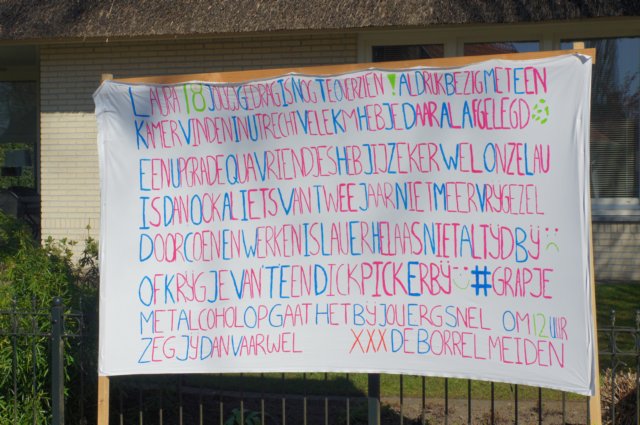 LAURA 18 JOUW GEDRAG IS NOG TE OVERZIEN! AL DRUK BEZIG MET EEN
KAMER VINDEN IN UTRECHT VELE KM HEB JE DAAR AL AFGELEGD
EEN UPGRADE QUA VRIENDJES HEB JIJ ZEKER WEL ONZE LAU
IS DAN OOK AL IETS VAN TWEE JAAR NIET MEER VRIJGEZEL
DOOR COEN EN WERKEN IS LAU ER HELAAS NIET ALTIJD BIJ :(
OF KRIJG JE VAN TEEN DICK PICK ERBIJ :) #GRAPJE
MET ALCOHOL OP GAAT HET BIJ JOU ERG SNEL OM 12 UUR
ZEG JIJ DAN VAARWEL XXX DE BORRELMEIDEN